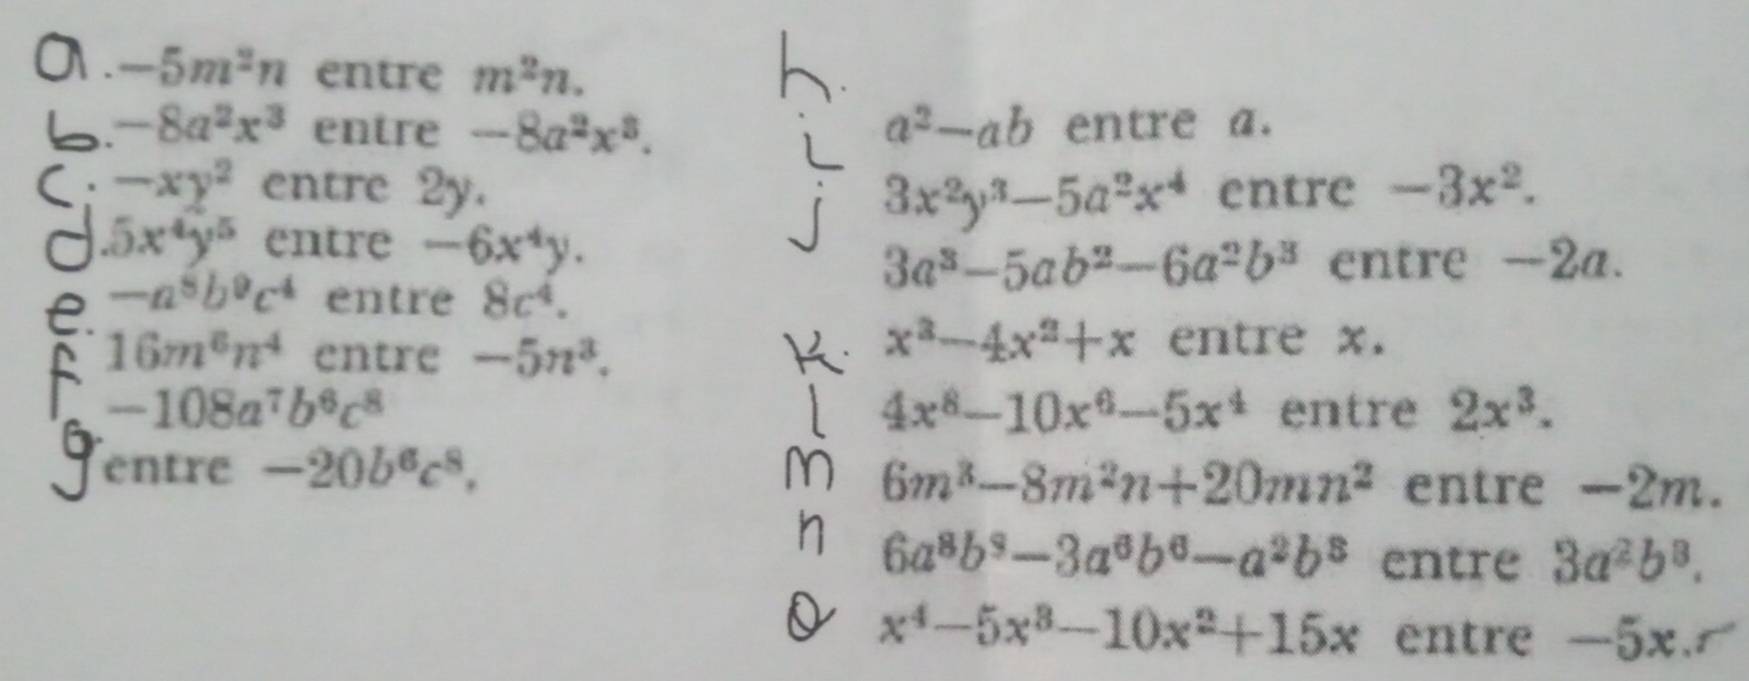 a. −5m²n entre m²n.
b. −8a²x³ entre −8a²x³.
c. −xy² entre 2y.
d. 5x⁴y⁵ entre −6x⁴y.
e. −a⁸b⁹c⁴ entre 8c⁴.
f 16m⁶n⁴ entre −5n³.
g. −108a⁷b⁶c⁸
entre −20b⁶c⁸.
h. a²−ab entre a.
i. 3x²y³−5a²x⁴ entre −3x².
j. 3a³−5ab²−6a²b³ entre −2a.
k. x³−4x²+x entre x.
l 4x⁸−10x⁶−5x⁴ entre 2x³.
m 6m³−8m²n+20mn² entre −2m.
n 6a⁸b⁸−3a⁶b⁶−a²b³ entre 3a²b³.
o x⁴−5x³−10x²+15x entre −5x.